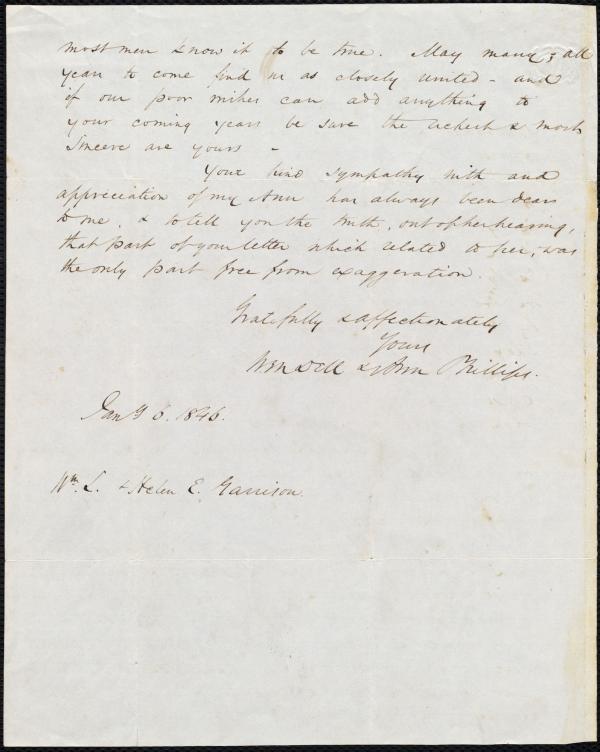 most men know it to be true. May many & all
years to come find us as closely united - and
if our poor wishes can add anything to
your coming years be sure the richest & most
sincere are yours -
Your kind sympathy with and
appreciation of my Ann has always been dear
to me, & to tell you the truth, out of her hearing,
that part of your letter which related to her, was
the only part free from exaggeration.
Gratefully & affectionately
Yours
Wendell & Ann Phillips.
Jany 6. 1846.
Wm. L. & Helen E. Garrison.